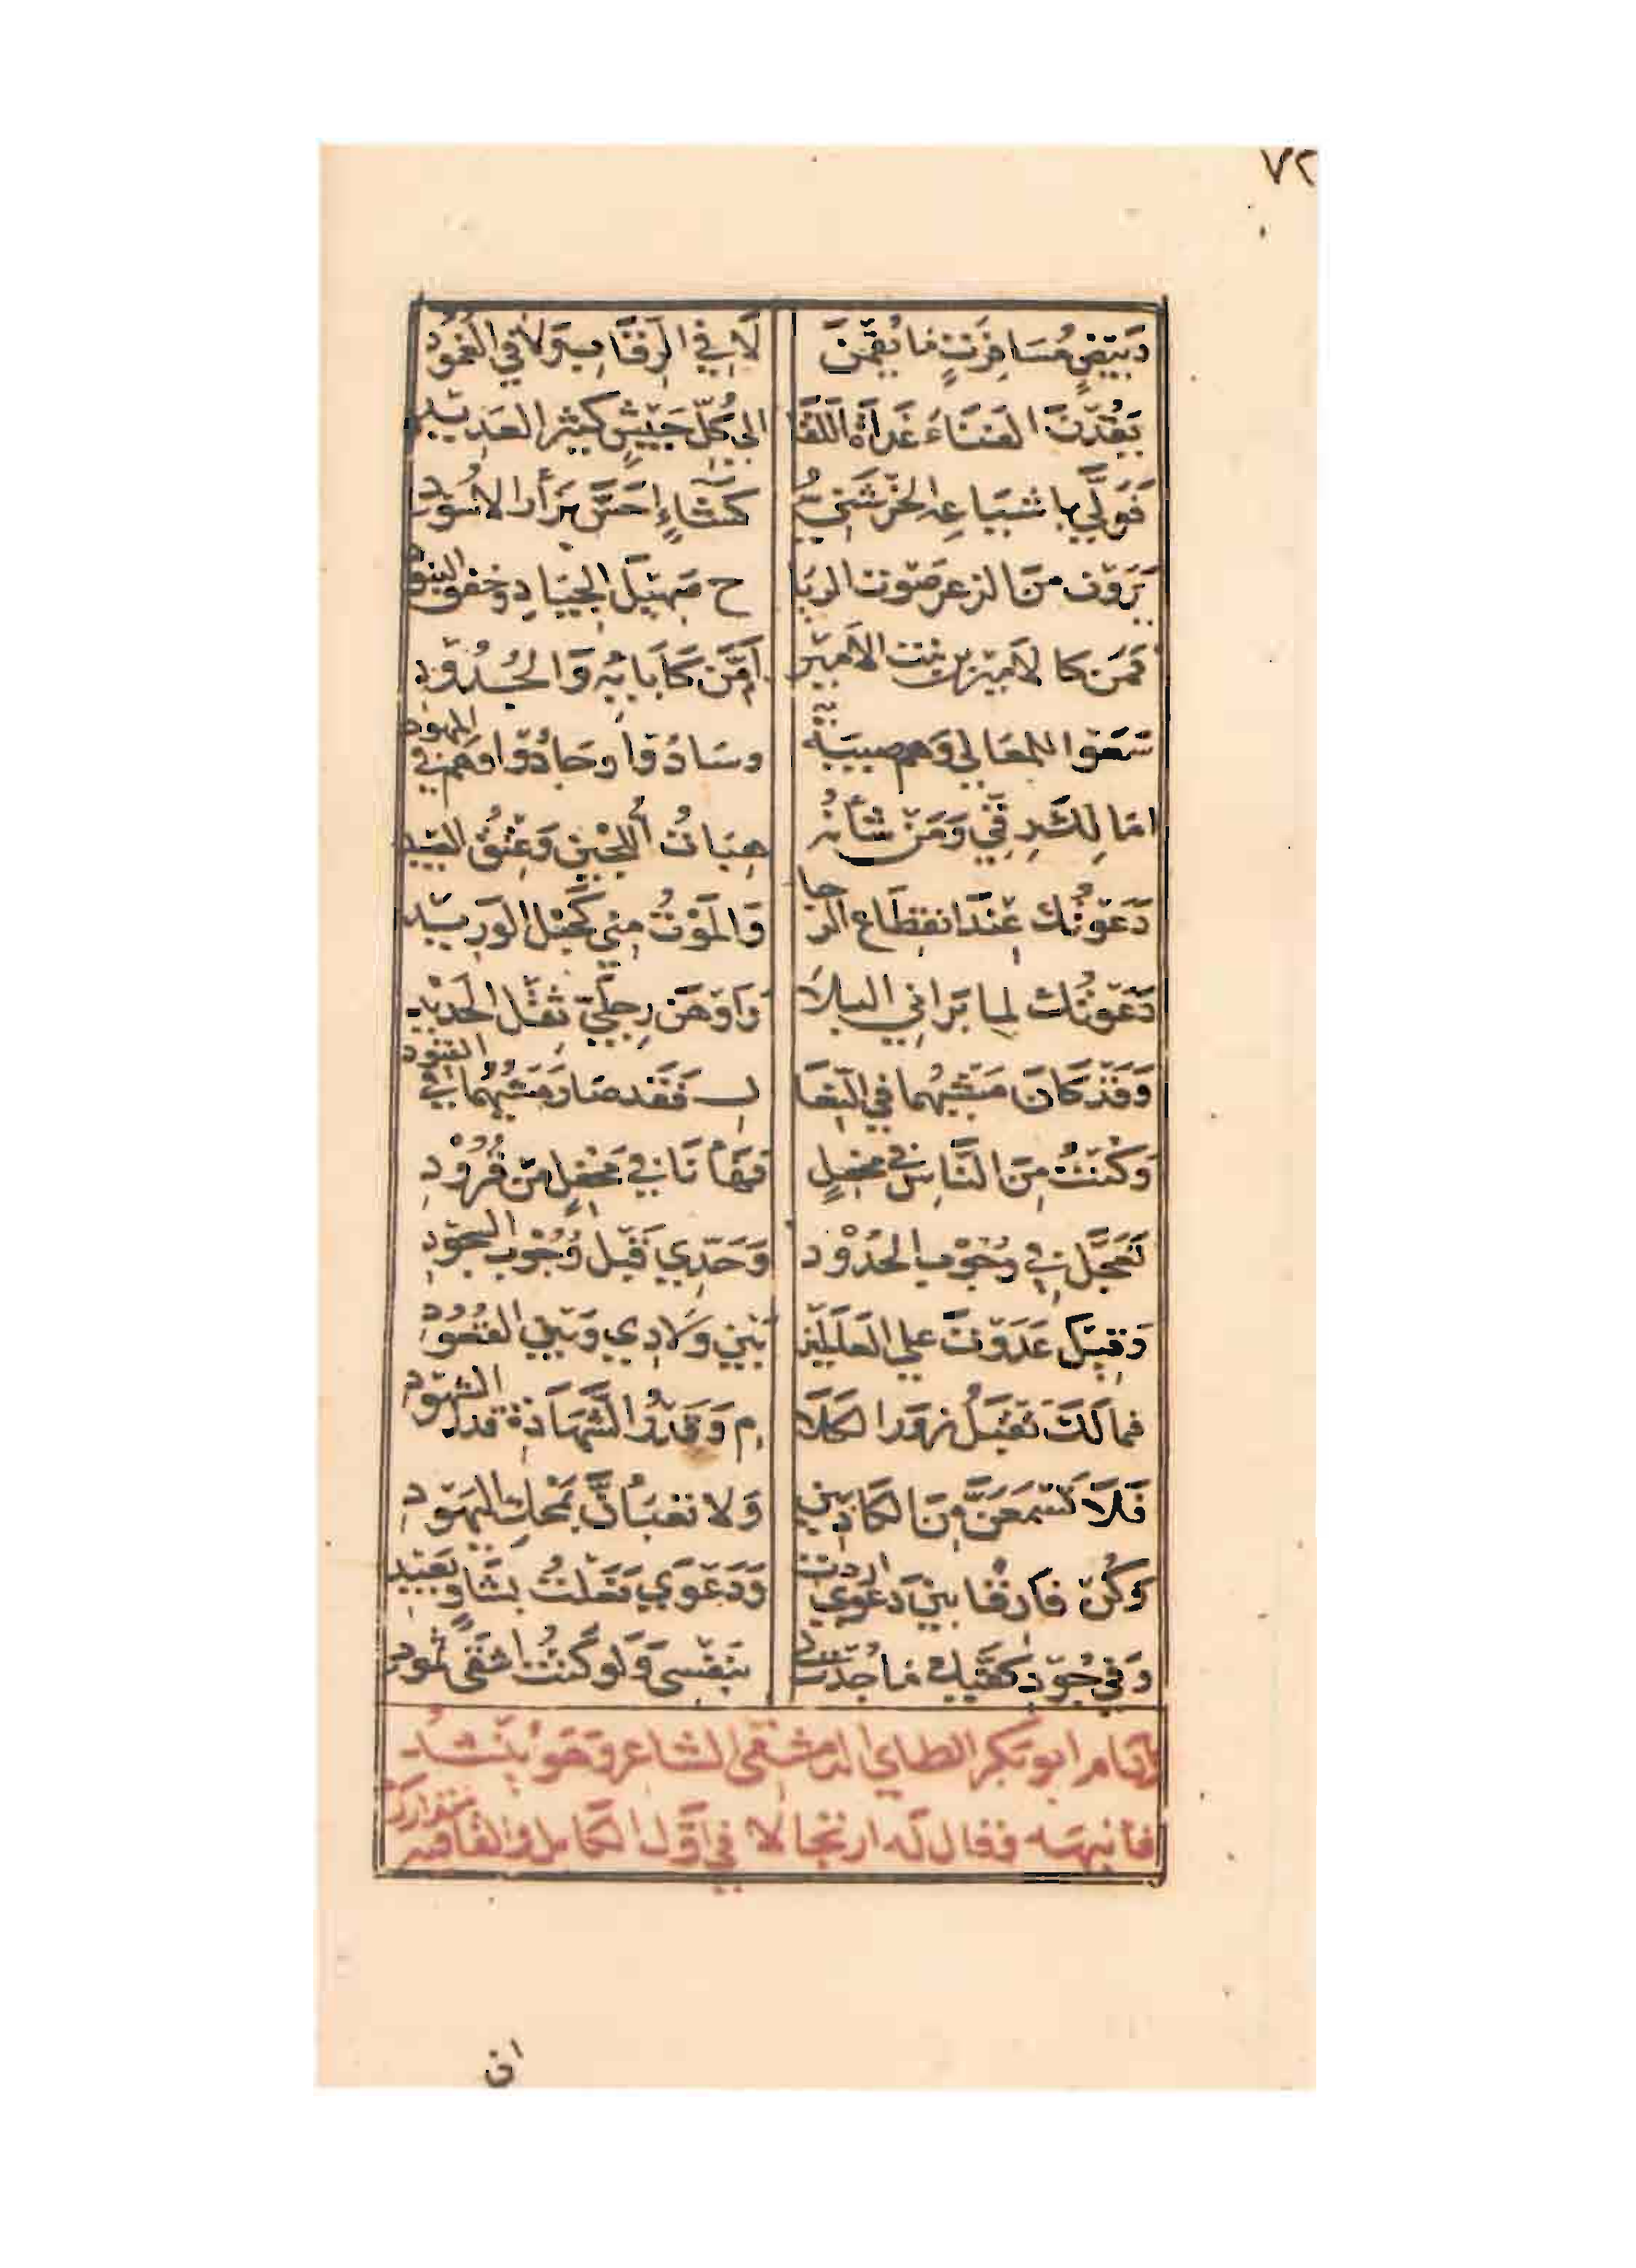 ٧٢
وَبِيضٍ مُسَافِرَةٍ مَا يُقِمْنَ لَا فِي الرِّقَابِ وَلَا فِي الغُمُودِ
يَقُدْنَ الفَنَاءَ غَدَاةَ اللِّقَا الى كُلِّ جَيْشٍ كَثِيرِ العَدِيدِ
فَوَلَّى باشياعِهِ الخَرْشَنِيُّ كَشَاءٍ احَسَّ بَزَأْرِ الاُسُودِ
يَرَوْنَ مِنَ الذعرِ صَوْتَ الرِيَا حِ صَهِيلَ الجِيَادِ وخفق البُنُودِ
فَمَنْ كالاَمِيْرِ بنِ بِنْتِ الاَمِيْرِ اَمْ مَنْ كَآبَائِهِ وَالجُدُوْدِ
سَعَوْا للمعَالِي وَهم صبيَةٌ وسَادُوا وجَادُوْا وهُم في المُهودِ
امَا لِكَ رِقِّي وَمَنْ شَأنُهُ هِبَاتُ اللُّجَيْنِ وَعِتْقُ العَبِيدِ
دَعَوْتُكَ عِنْدَ انقِطَاعِ الرَّجا وَالمَوْتُ مِنِّي كَحَبْلِ الوَرِيْدِ
دَعَوْتُكَ لما بَرَانِي البلاَ وَاَوْهَنَ رِجلَيَّ ثقْلُ الحَدِيْدِ
وَقَدْ كَانَ مَشْيُهُما فِي النِّعَا لِ فَقَد صَارَ مَشْيُهُمَا فِي القُيُودِ
وَكُنْتُ مِنَ النَّاسِ في محفِلٍ فَهَا اَنَا فِي مَحْفِلٍ مِنْ قُرُوْدِ
تُعَجَّلُ فِيَّ وُجُوْبُ الحُدُوْدِ وَحَدِّي قَبْلَ وُجُوْبِ السُّجُوْدِ
وَقيلَ عَدَوْتَ على العَالَمِيْنَ بَيْنَ وِلَادِي وَبَيْنَ القُعُوْدِ
فما لَكَ تَقْبَلُ زُورَ الكَلَا مِ وَقَدْرُ الشَّهَادَةِ قدر الشُّهُوْدِ
فَلَا تَسْمَعَنَّ مِنَ الكَاذِبِينَ وَلا تعْبَأنَّ بمَحْكِ اليَهُوْدِ
وَكُنْ فارقًا بينَ دَعْوَى اردت وَدَعْوَى فَعَلْتُ بِشَأوٍ بَعِيْدِ
وَفِي جُوْدِ كَفَّيْكَ مَا جُدْتَ لي بنَفْسِي وَلو كُنْتُ اشقَى ثَمُودِ
وَنَام ابو بَكر الطاي الدمشقي الشاعر وَهَوَ يُنْشدُ
فانبهه فقال لَه ارتجالا فِي اَوَّل الكامل والقافية متدارك
ان